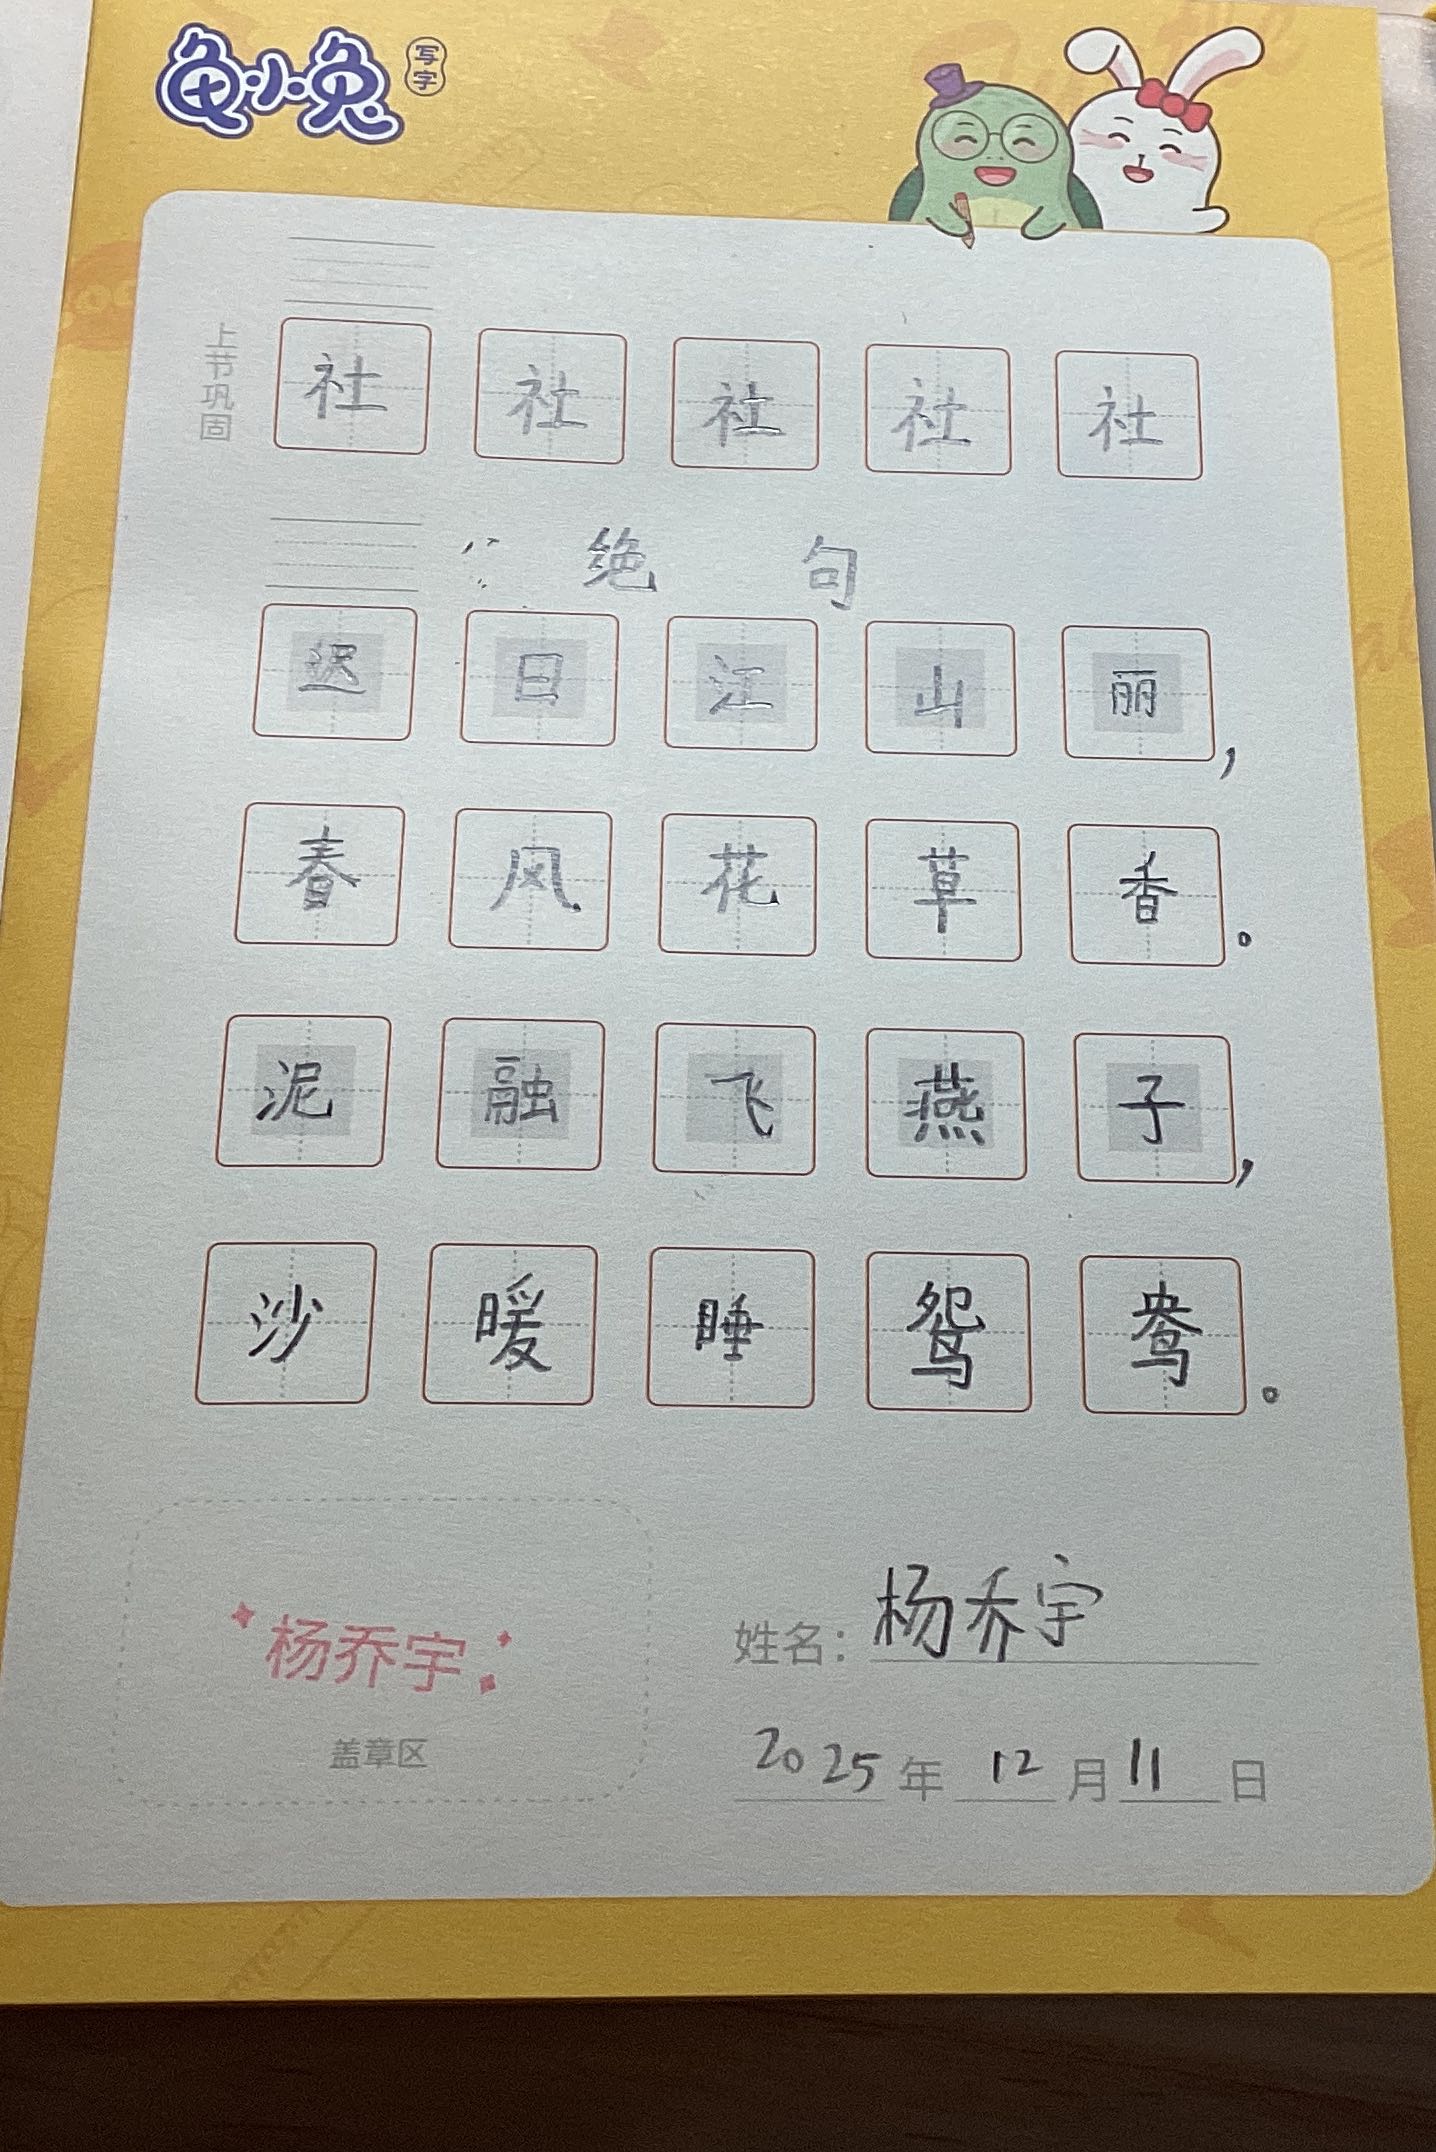 龟小兔 写字
上节巩固
社 社 社 社 社
绝 句
迟 日 江 山 丽，
春 风 花 草 香。
泥 融 飞 燕 子，
沙 暖 睡 鸳 鸯。
杨乔宇
盖章区
姓名：杨乔宇
2025 年 12 月 11 日